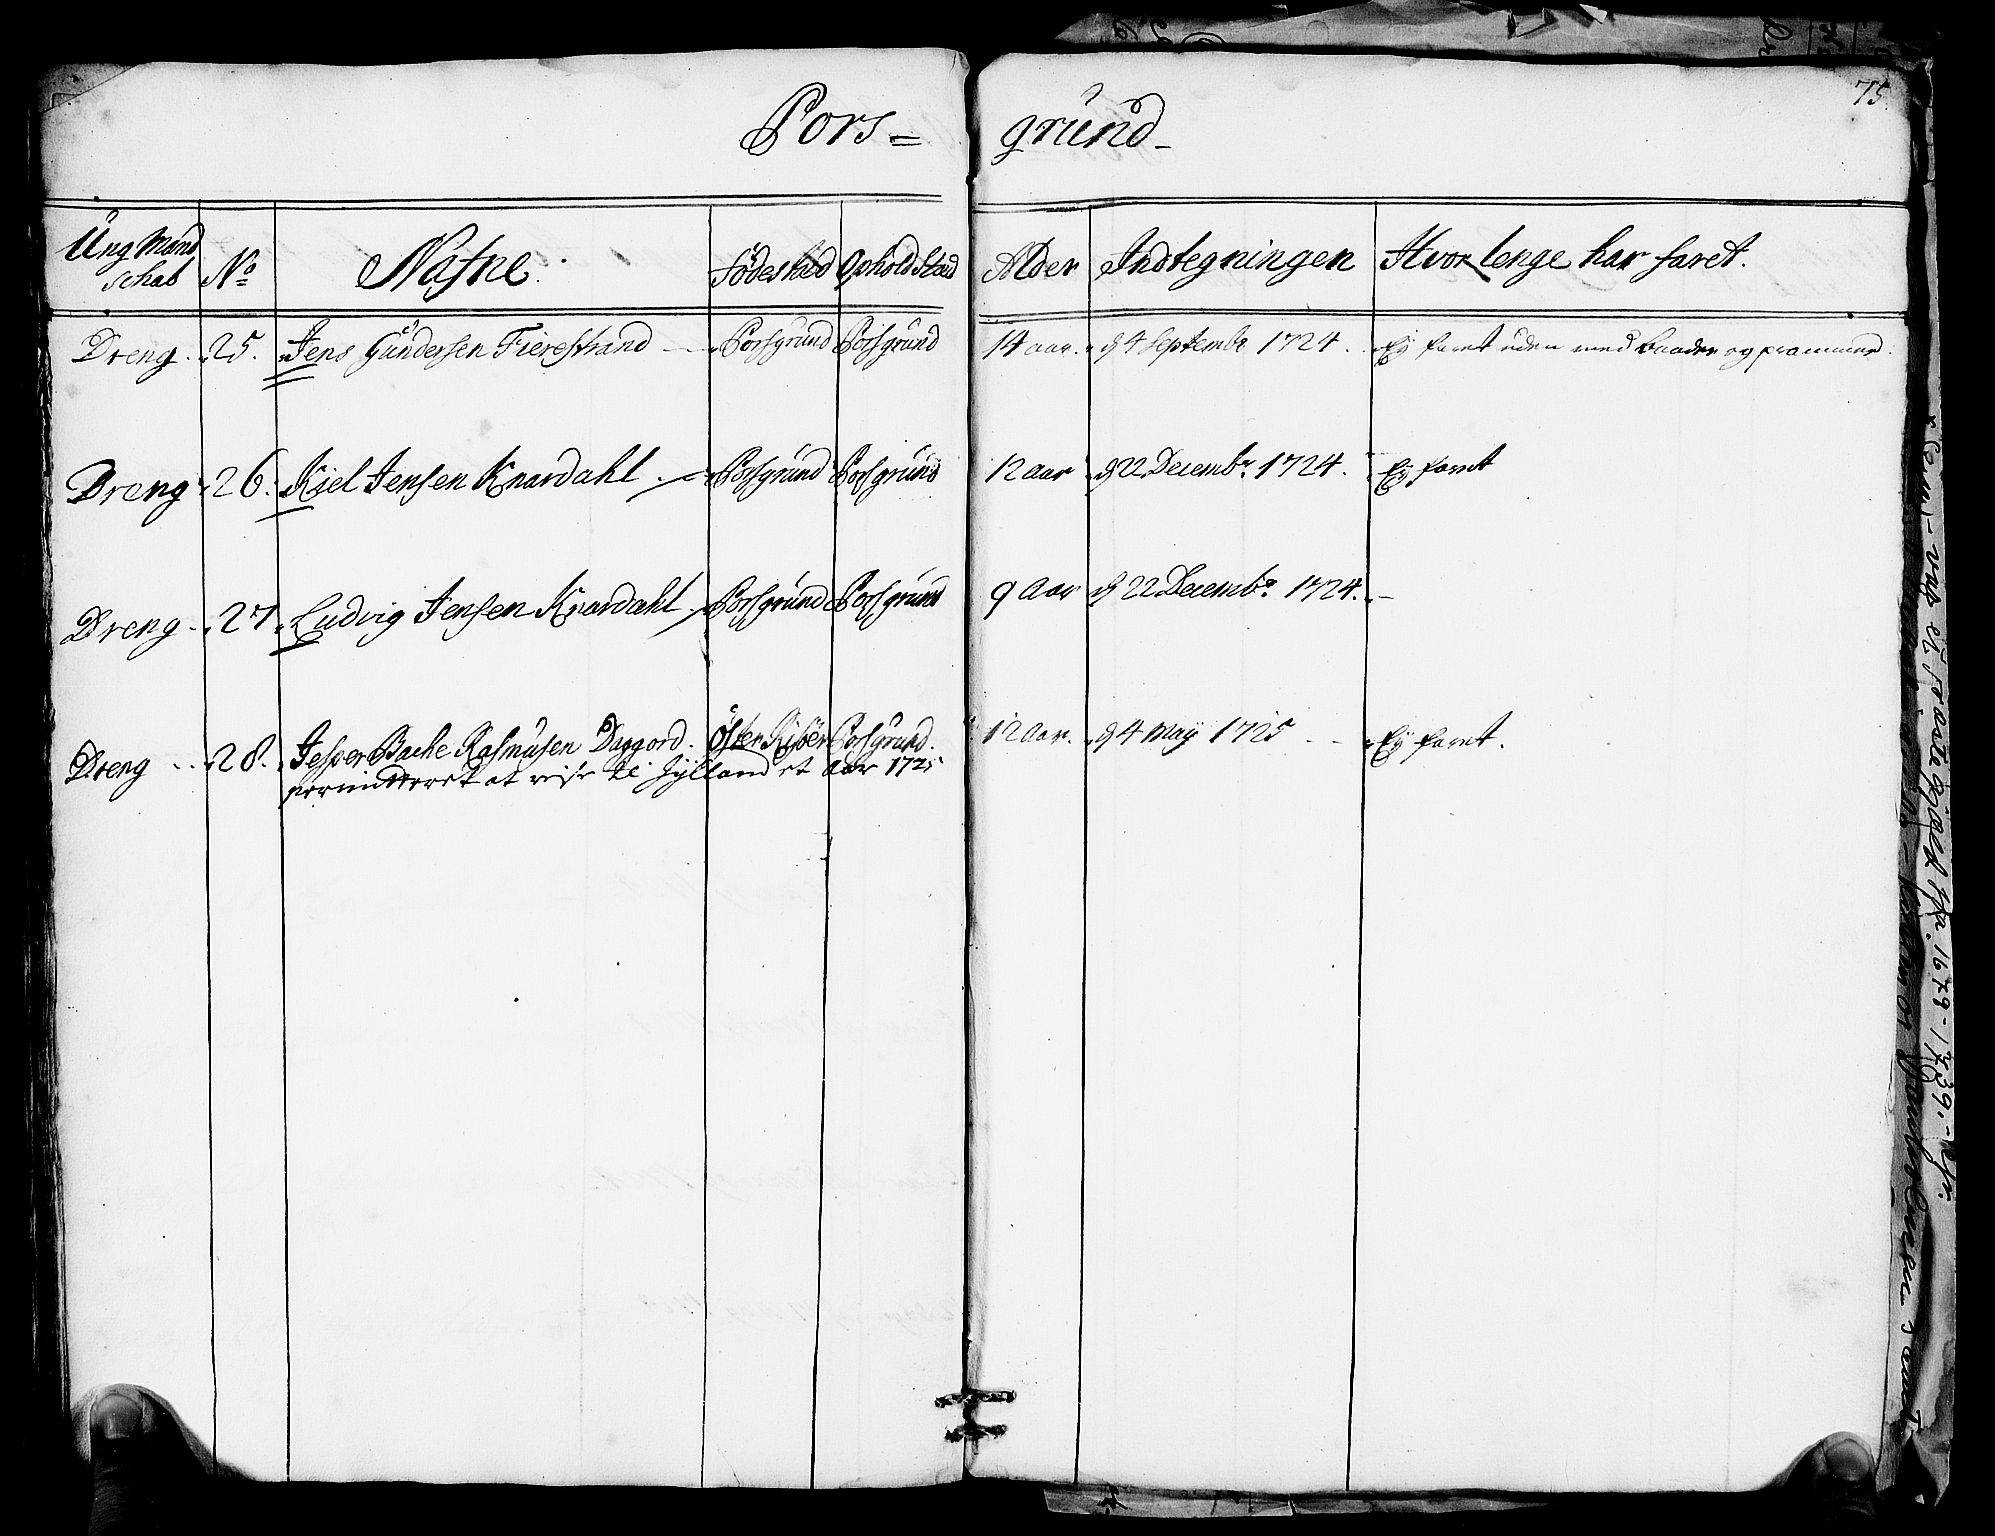 75.
Pors= grund
Ung Mandschab No Nafne Födestæd Ophold Stæd Alder Indtegningen Hvor lenge har faret.
Dreng. 25. Jens Gündersen Fierestrand Porsgrund Porsgrund 14 aar. d 4 Septembr 1724. Ey faret uden med baader og prammer.
Dreng 26. Kiel Jensen Knardahl Porsgrund Porsgrund 12 aar d 22 Decembr. 1724. Ey faret
Dreng 27. Ludvig Jensen Knardahl Porsgrund Porsgrund 9 aar d 22 Decembr. 1724. –
Dreng 28. Jesper Bache Rasmusen Daggord. Öster Risöer Porsgrund. 12 Aar. d 4 Maÿ 1725 Eÿ faret.
permitteret at reise til Jÿlland et Aar 1725
1679-1739.